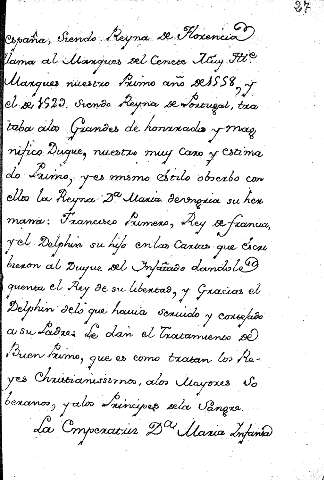 27
españa, siendo Reyna de Florencia
llama al Marques del Cenete Muy Ille
Marques nuestro Primo año de 1558, y
el de 1523. siendo Reyna de Portugal, tra
taba a los Grandes de honrrado y mag
nifico Duque, nuestro muy Caro y estima
do Primo, y es mismo estilo observo con
ellos la Reyna Da Maria de Vngria su her
mana: Francisco Primero, Rey de francia,
y el Delphin su hijo en las Cartas que escri
bieron al Duque del Infantado dandole
quenta el Rey de su libertad, y Gracias el
Delphin de lo que havia servido y cortejado
a su Padre: Le dan el Tratamiento de
Buen Primo, que es como tratan los Re-
yes Christianissimos, a los Mayores So
beranos, y a los Principes de la Sangre.
La Emperatriz Da Maria Infanta